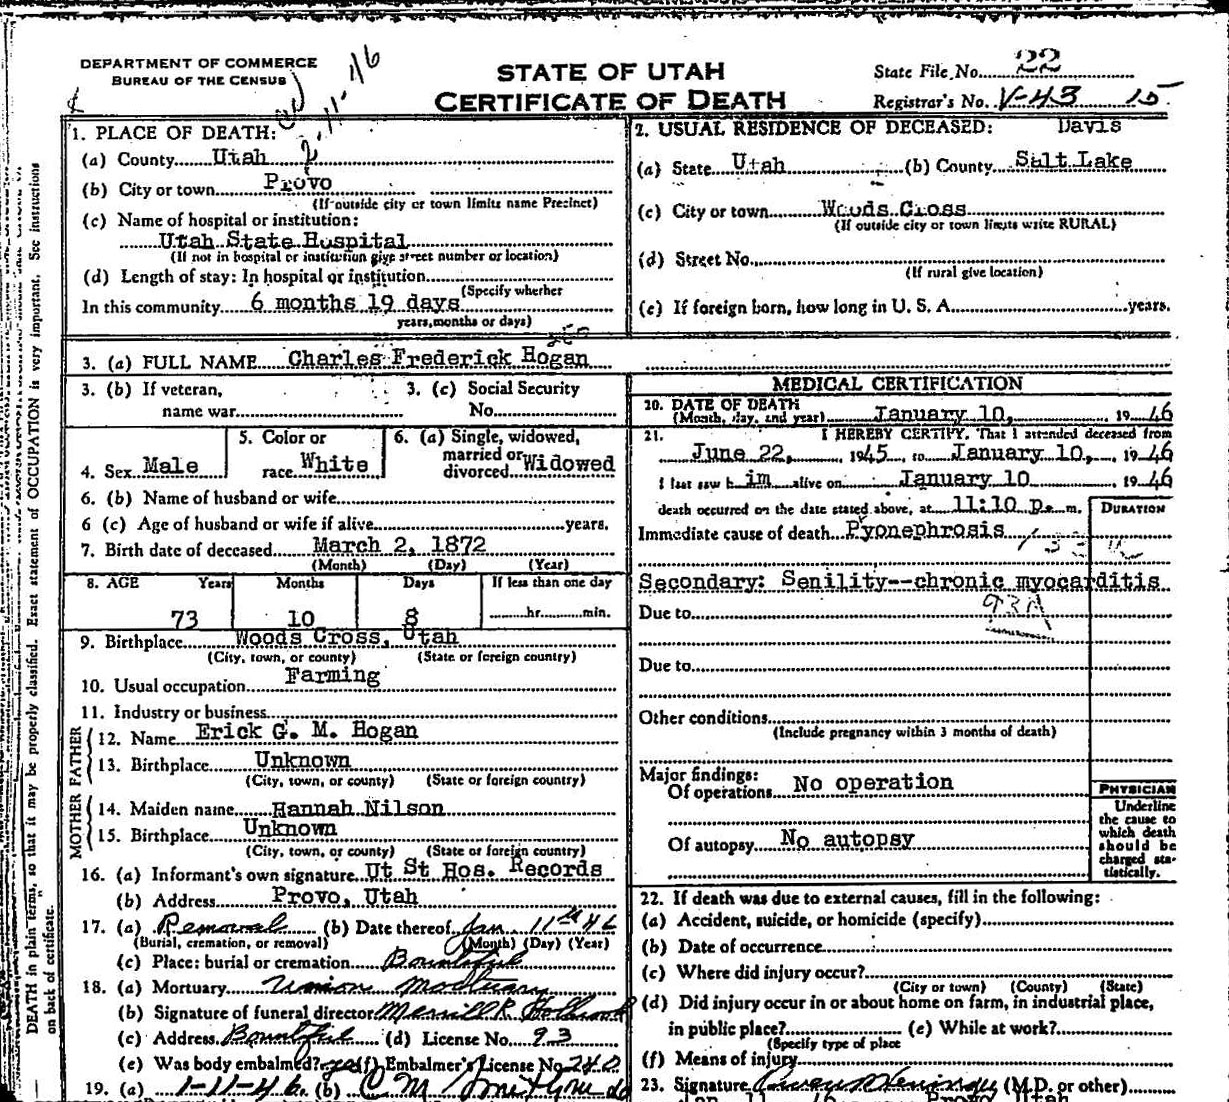 DEPARTMENT OF COMMERCE
BUREAU OF THE CENSUS
2-11-46
STATE OF UTAH
CERTIFICATE OF DEATH
State File No. 22
Registrar's No. V-43 15
1. PLACE OF DEATH:
(a) County Utah
(b) City or town Provo
(If outside city or town limits name Precinct)
(c) Name of hospital or institution:
Utah State Hospital
(If not in hospital or institution give street number or location)
(d) Length of stay: In hospital or institution
(Specify whether
In this community 6 months 19 days
years, months or days)
2. USUAL RESIDENCE OF DECEASED: Davis
(a) State Utah (b) County Salt Lake
(c) City or town Woods Cross
(If outside city or town limits write RURAL)
(d) Street No.
(If rural give location)
(e) If foreign born, how long in U. S. A. years.
3. (a) FULL NAME Charles Frederick Hogan
3. (b) If veteran, name war
3. (c) Social Security No.
4. Sex Male
5. Color or race White
6. (a) Single, widowed, married or divorced Widowed
6. (b) Name of husband or wife
6 (c) Age of husband or wife if alive years.
7. Birth date of deceased March 2, 1872
(Month) (Day) (Year)
8. AGE Years Months Days If less than one day
73 10 8 hr. min.
9. Birthplace Woods Cross, Utah
(City, town, or county) (State or foreign country)
10. Usual occupation Farming
11. Industry or business
FATHER
12. Name Erick G. M. Hogan
13. Birthplace Unknown
(City, town, or county) (State or foreign country)
MOTHER
14. Maiden name Hannah Nilson
15. Birthplace Unknown
(City, town, or county) (State or foreign country)
16. (a) Informant's own signature Ut St Hos. Records
(b) Address Provo, Utah
17. (a) Removal (b) Date thereof Jan. 11th 46
(Burial, cremation, or removal) (Month) (Day) (Year)
(c) Place: burial or cremation Bountiful
18. (a) Mortuary Union Mortuary
(b) Signature of funeral director Merrill R Holbrook
(c) Address Bountiful (d) License No. 93
(e) Was body embalmed? yes (f) Embalmer's License No. 240
19. (a) 1-11-46 (b)
MEDICAL CERTIFICATION
20. DATE OF DEATH
(Month, day, and year) January 10, 1946
21. I HEREBY CERTIFY, That I attended deceased from
June 22, 1945, to January 10, 1946
I last saw him alive on January 10, 1946
death occurred on the date stated above, at 11:10 p. m.
DURATION
Immediate cause of death Pyonephrosis
Secondary: Senility--chronic myocarditis
93A
Due to
Due to
Other conditions
(Include pregnancy within 3 months of death)
Major findings:
Of operations No operation
Of autopsy No autopsy
PHYSICIAN
Underline the cause to which death should be charged statistically.
22. If death was due to external causes, fill in the following:
(a) Accident, suicide, or homicide (specify)
(b) Date of occurrence
(c) Where did injury occur?
(City or town) (County) (State)
(d) Did injury occur in or about home on farm, in industrial place, in public place? (e) While at work?
(Specify type of place
(f) Means of injury
23. Signature (M.D. or other)
Provo, Utah
DEATH in plain terms, so that it may be properly classified. Exact statement of OCCUPATION is very important. See instructions
on back of certificate.